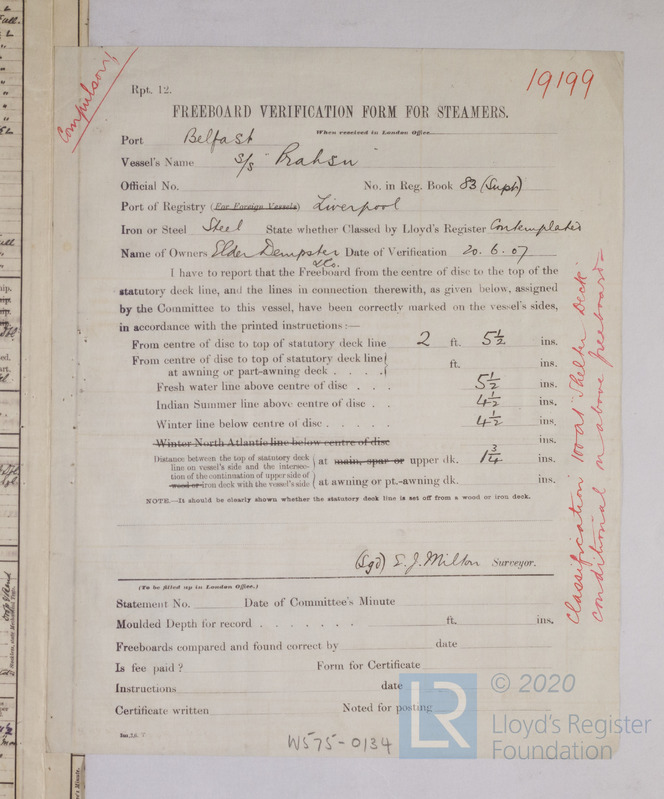 Compulsory
19199
Rpt. 12.
FREEBOARD VERIFICATION FORM FOR STEAMERS.
When received in London Office
Port Belfast
Vessel's Name s/s "Prahsu"
Official No. No. in Reg. Book 83 (Supt)
Port of Registry (For Foreign Vessels) Liverpool
Iron or Steel Steel State whether Classed by Lloyd's Register Contemplated
Name of Owners Elder Dempster & Co. Date of Verification 20.6.07
I have to report that the Freeboard from the centre of disc to the top of the
statutory deck line, and the lines in connection therewith, as given below, assigned
by the Committee to this vessel, have been correctly marked on the vessel's sides,
in accordance with the printed instructions:—
From centre of disc to top of statutory deck line 2 ft. 5½ ins.
From centre of disc to top of statutory deck line
at awning or part-awning deck . . . . ft. ins.
Fresh water line above centre of disc . . . 5½ ins.
Indian Summer line above centre of disc . . 4½ ins.
Winter line below centre of disc . . . . . 4½ ins.
Winter North Atlantic line below centre of disc ins.
Distance between the top of statutory deck
line on vessel's side and the intersec-
tion of the continuation of upper side of
wood or iron deck with the vessel's side
at main, spar or upper dk. 1¾ ins.
at awning or pt.-awning dk. ins.
NOTE.—It should be clearly shown whether the statutory deck line is set off from a wood or iron deck.
(Sgd) E. J. Milton Surveyor.
Classification 100A1 "Shelter Deck"
conditional on above freeboard—
(To be filled up in London Office.)
Statement No. Date of Committee's Minute
Moulded Depth for record . . . . . . . ft. ins.
Freeboards compared and found correct by date
Is fee paid? Form for Certificate
Instructions date
Certificate written Noted for posting
W575-0134
LR
© 2020
Lloyd's Register
Foundation